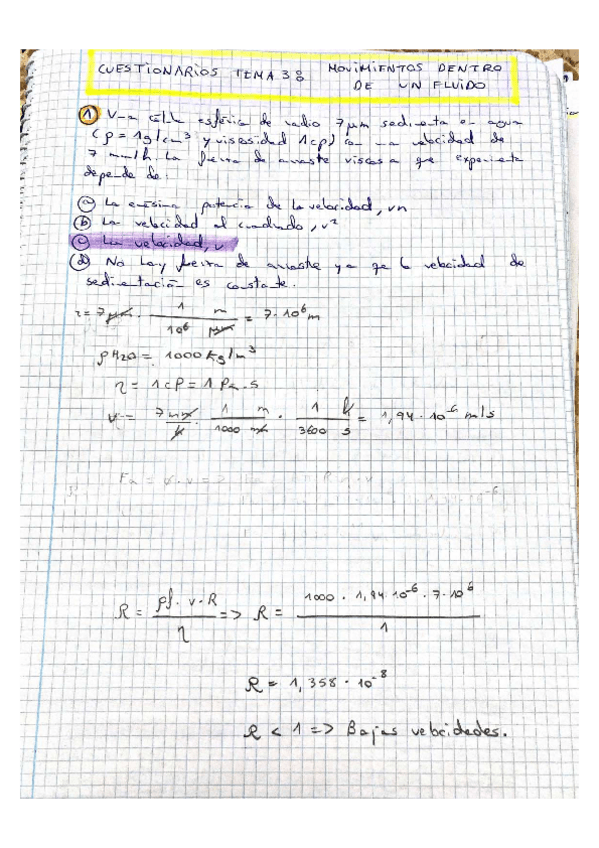 CUESTIONARIOS TEMA 38 MOVIMIENTOS DENTRO
DE UN FLUIDO
1 Una célula esférica de radio 7μm sedimenta en agua
(ρ = 1g/cm³ y viscosidad 1cp) con una velocidad de
7 mm/h. La fuerza de arrastre viscosa que experimenta
depende de:
a La enésima potencia de la velocidad, vn
b La velocidad al cuadrado, v²
c La velocidad, v
d No hay fuerza de arrastre ya que la velocidad de
sedimentación es constante.
r = 7μm · 1/10⁶ m/μm = 7·10⁶m
ρH2O = 1000 kg/m³
η = 1cP = 1 Pa.s
v = 7mm/h · 1/1000 m/mm · 1/3600 h/s = 1,94·10⁻⁶ m/s
R = ρf. v·R/η => R = 1000 · 1,94·10⁻⁶ · 7·10⁶/1
R = 1,358·10⁻⁸
R < 1 => Bajas velocidades.